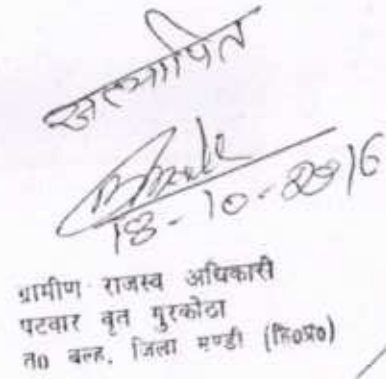 सत्यापित
18-10-2016
ग्रामीण राजस्व अधिकारी
पटवार वृत गुरकोठा
त0 बल्ह, जिला मण्डी (हि0प्र0)